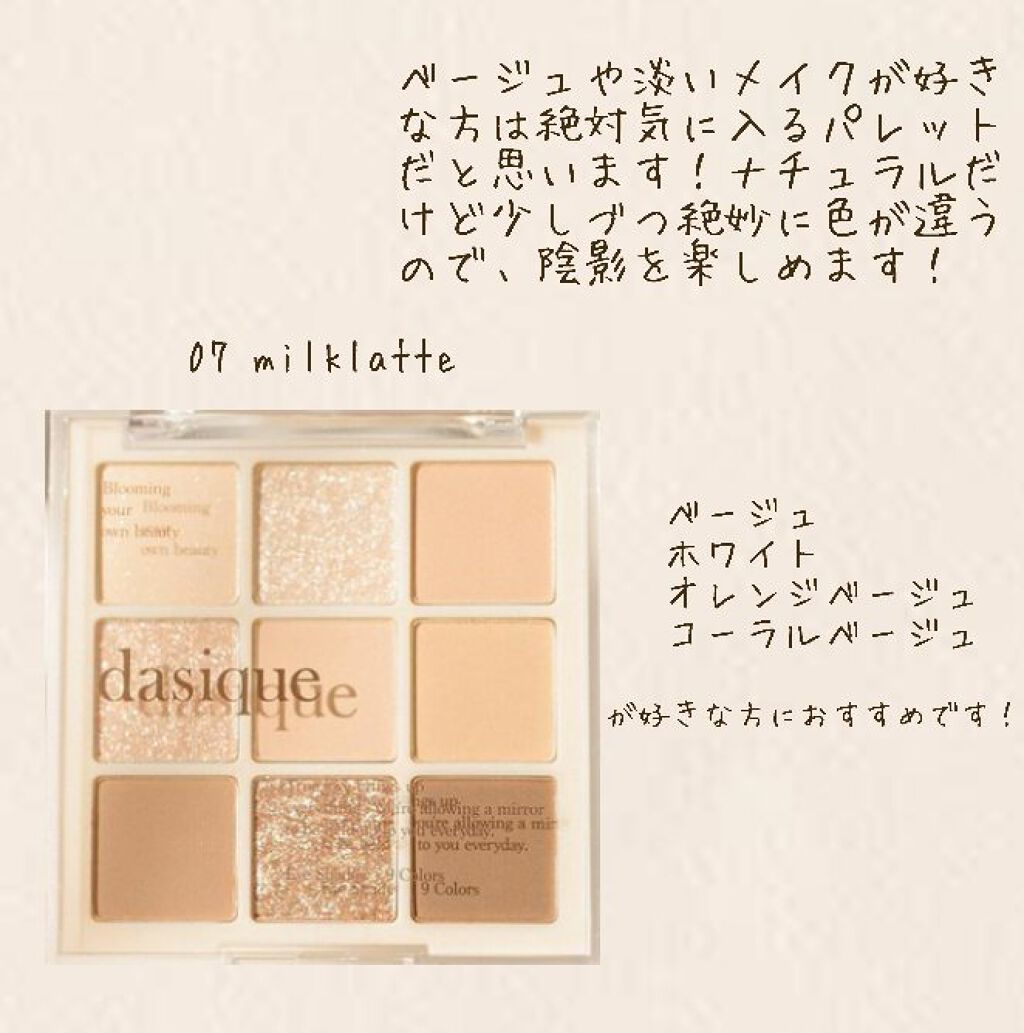 ベージュや淡いメイクが好き
な方は絶対気に入るパレット
だと思います！ナチュラルだ
けど少しづつ絶妙に色が違う
ので、陰影を楽しめます！
07 milklatte
Blooming
your Blooming
own beauty
own beauty
dasique
ベージュ
ホワイト
オレンジベージュ
コーラルベージュ
が好きな方におすすめです！
allowing a mirror
you're allowing a
to you everyday.
9 Colors
9 Colors